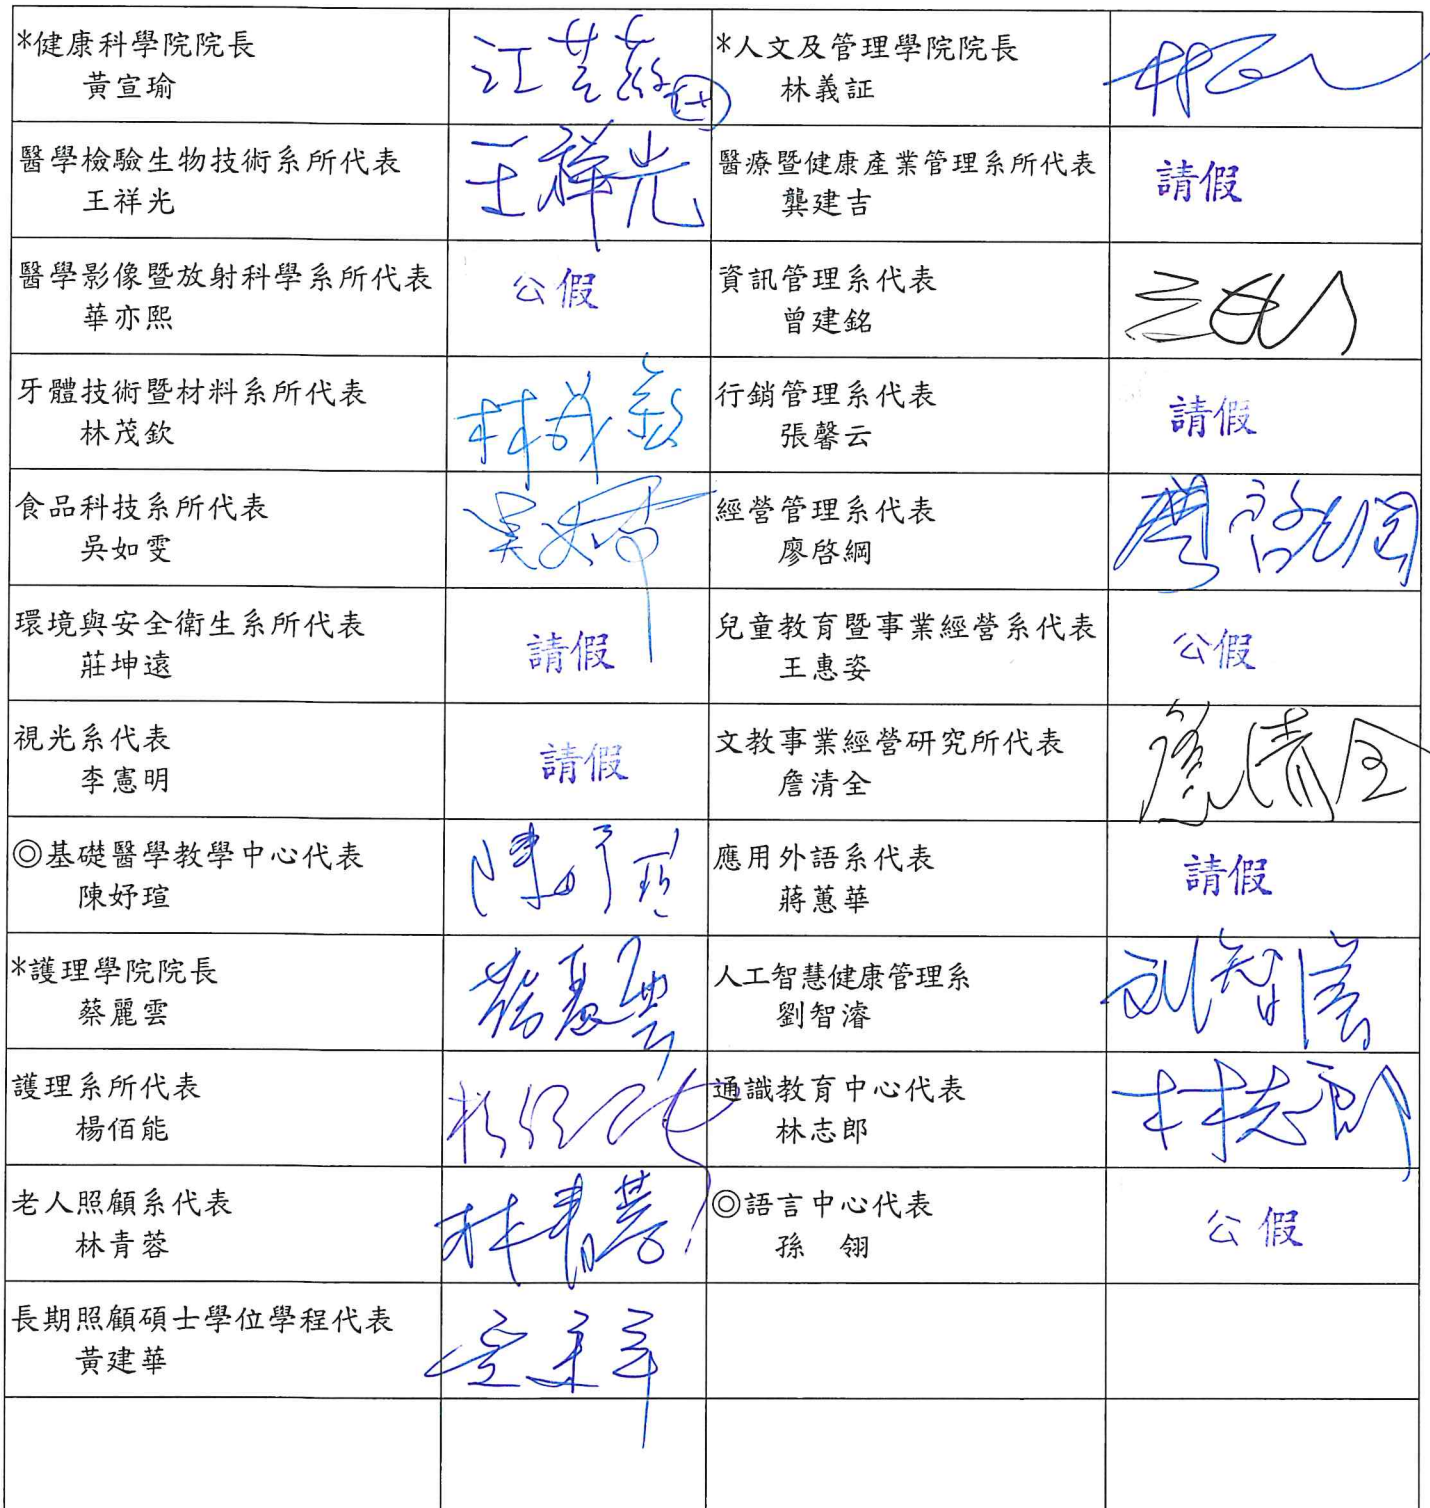 *健康科學院院長
黃宣瑜
*人文及管理學院院長
林義証
醫學檢驗生物技術系所代表
王祥光
王祥光
醫療暨健康產業管理系所代表
龔建吉
請假
醫學影像暨放射科學系所代表
華亦熙
公假
資訊管理系代表
曾建銘
牙體技術暨材料系所代表
林茂欽
林茂欽
行銷管理系代表
張馨云
請假
食品科技系所代表
吳如雯
吳如雯
經營管理系代表
廖啓綱
廖啓綱
環境與安全衛生系所代表
莊坤遠
請假
兒童教育暨事業經營系代表
王惠姿
公假
視光系代表
李憲明
請假
文教事業經營研究所代表
詹清全
詹清全
◎基礎醫學教學中心代表
陳妤瑄
陳妤瑄
應用外語系代表
蔣蕙華
請假
*護理學院院長
蔡麗雲
蔡麗雲
人工智慧健康管理系
劉智濬
刘智濬
護理系所代表
楊佰能
通識教育中心代表
林志郎
林志郎
老人照顧系代表
林青蓉
林青蓉
◎語言中心代表
孫 翎
公假
長期照顧碩士學位學程代表
黃建華